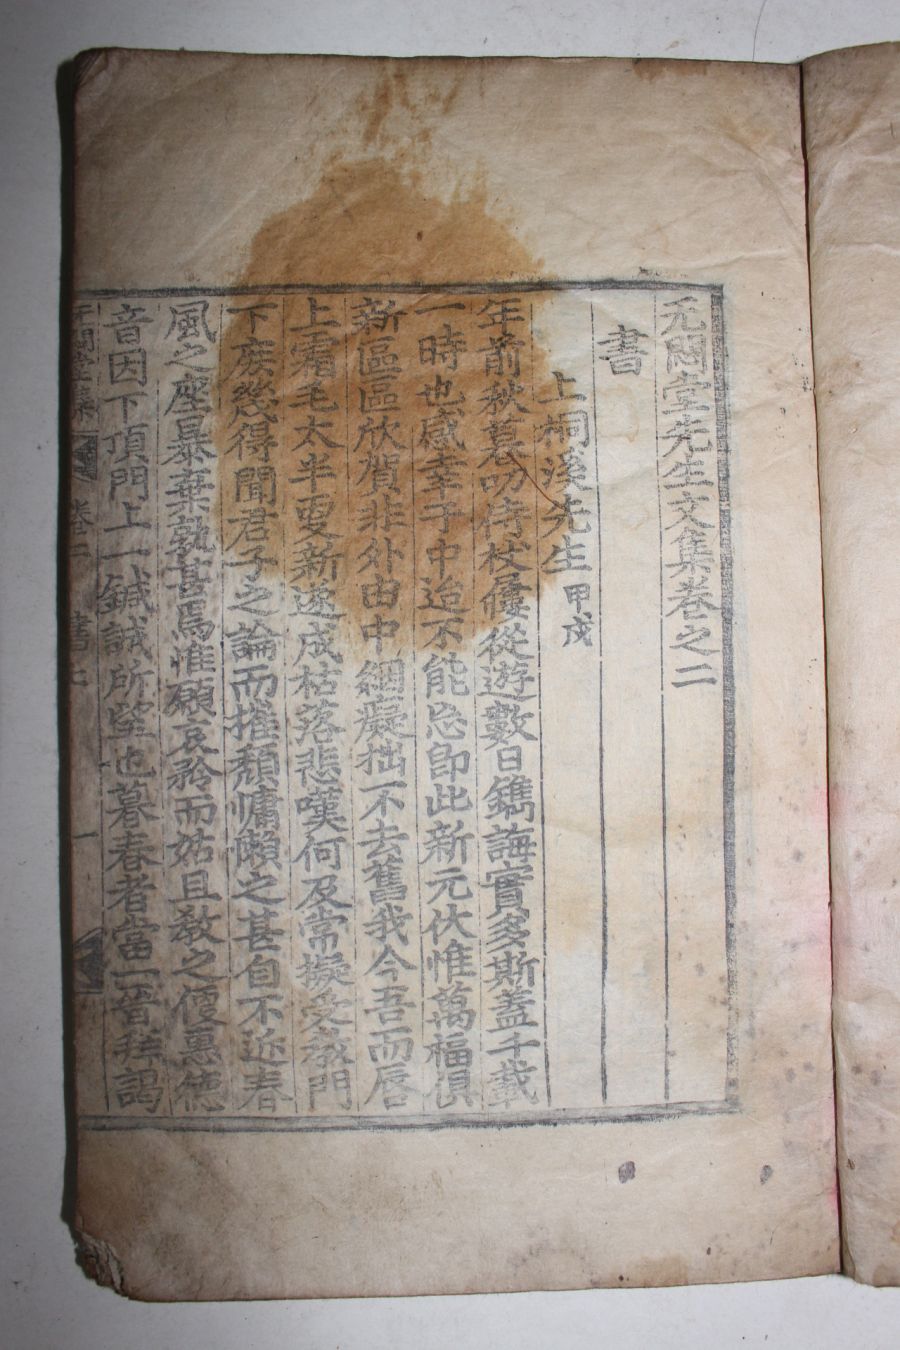 无悶堂先生文集卷之二
書
上桐溪先生 甲戌
年前秋暮叨侍杖屨從遊數日鐫誨實多斯蓋千載
一時也感幸于中迨不能忘卽此新元伏惟萬福俱
新區區欣賀非外由中絪癡拙不去舊我今吾而唇
上霜毛太半更新遂成枯落悲嘆何及常擬受敎門
下庶幾得聞君子之論而摧頹慵懶之甚自不近春
風之座暴棄孰甚焉惟願哀矜而姑且敎之便惠德
音因下頂門上一鍼誠所望也暮春者當一晉拜謁
无悶堂集 卷二 書 一